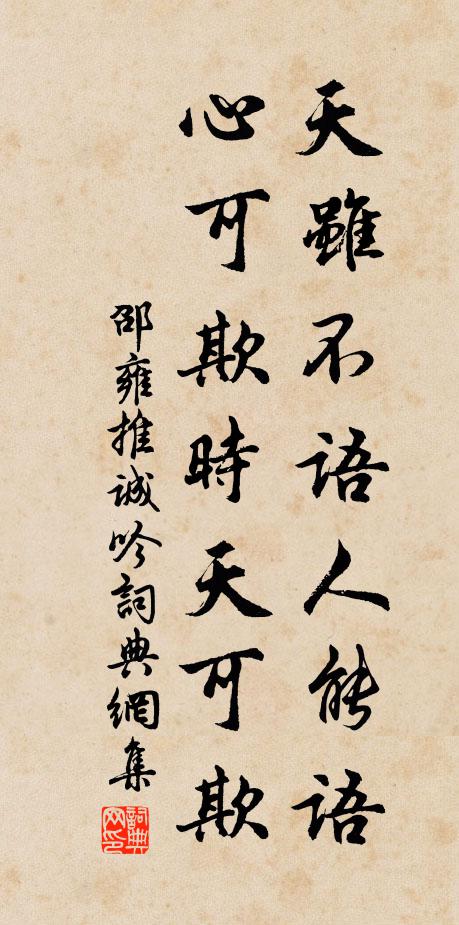 天雖不語人能語
心可欺時天可欺
邵雍推誠吟詞典網集
詞典网印